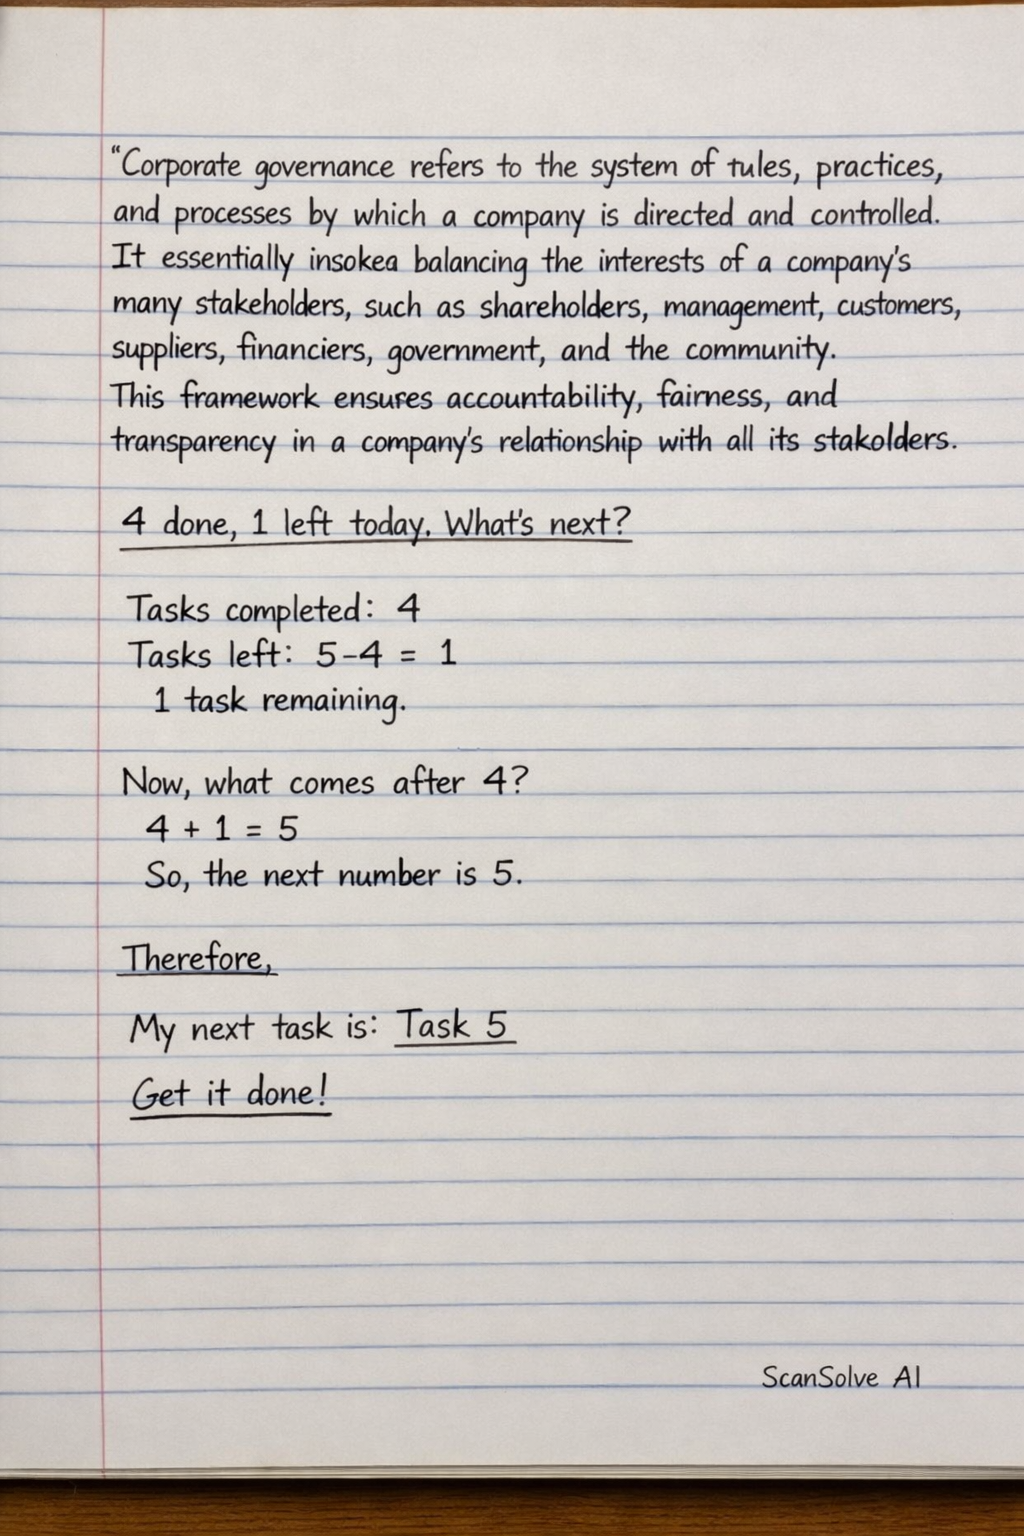 “Corporate governance refers to the system of rules, practices,
and processes by which a company is directed and controlled.
It essentially insokea balancing the interests of a company's
many stakeholders, such as shareholders, management, customers,
suppliers, financiers, government, and the community.
This framework ensures accountability, fairness, and
transparency in a company's relationship with all its stakolders.
4 done, 1 left today. What's next?
Tasks completed: 4
Tasks left: 5-4 = 1
1 task remaining.
Now, what comes after 4?
4 + 1 = 5
So, the next number is 5.
Therefore,
My next task is: Task 5
Get it done!
ScanSolve AI